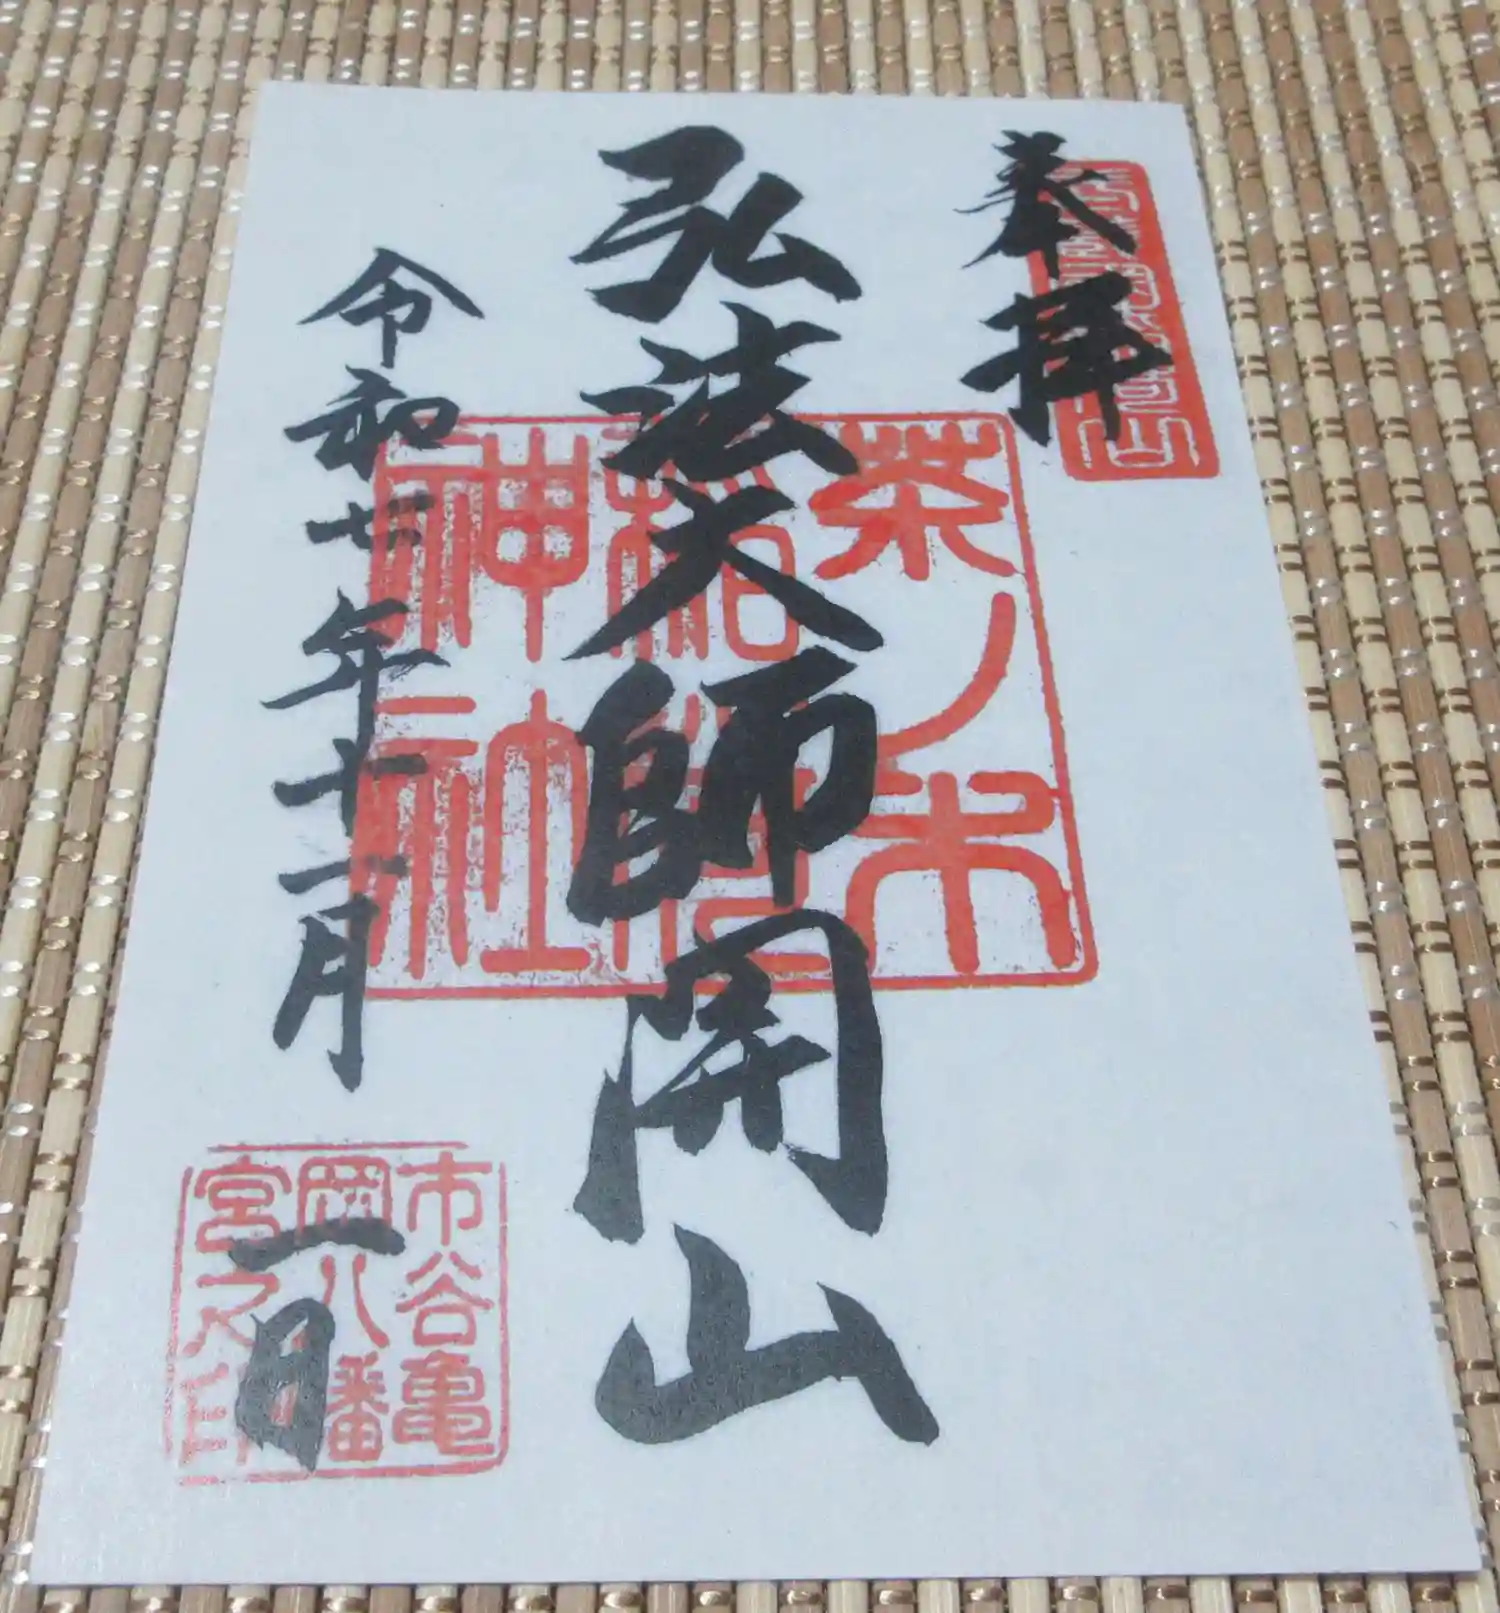 奉拝
弘法大師開山
令和七年十一月一日
茶ノ木
稲荷
神社
市谷亀
岡八幡
宮之印